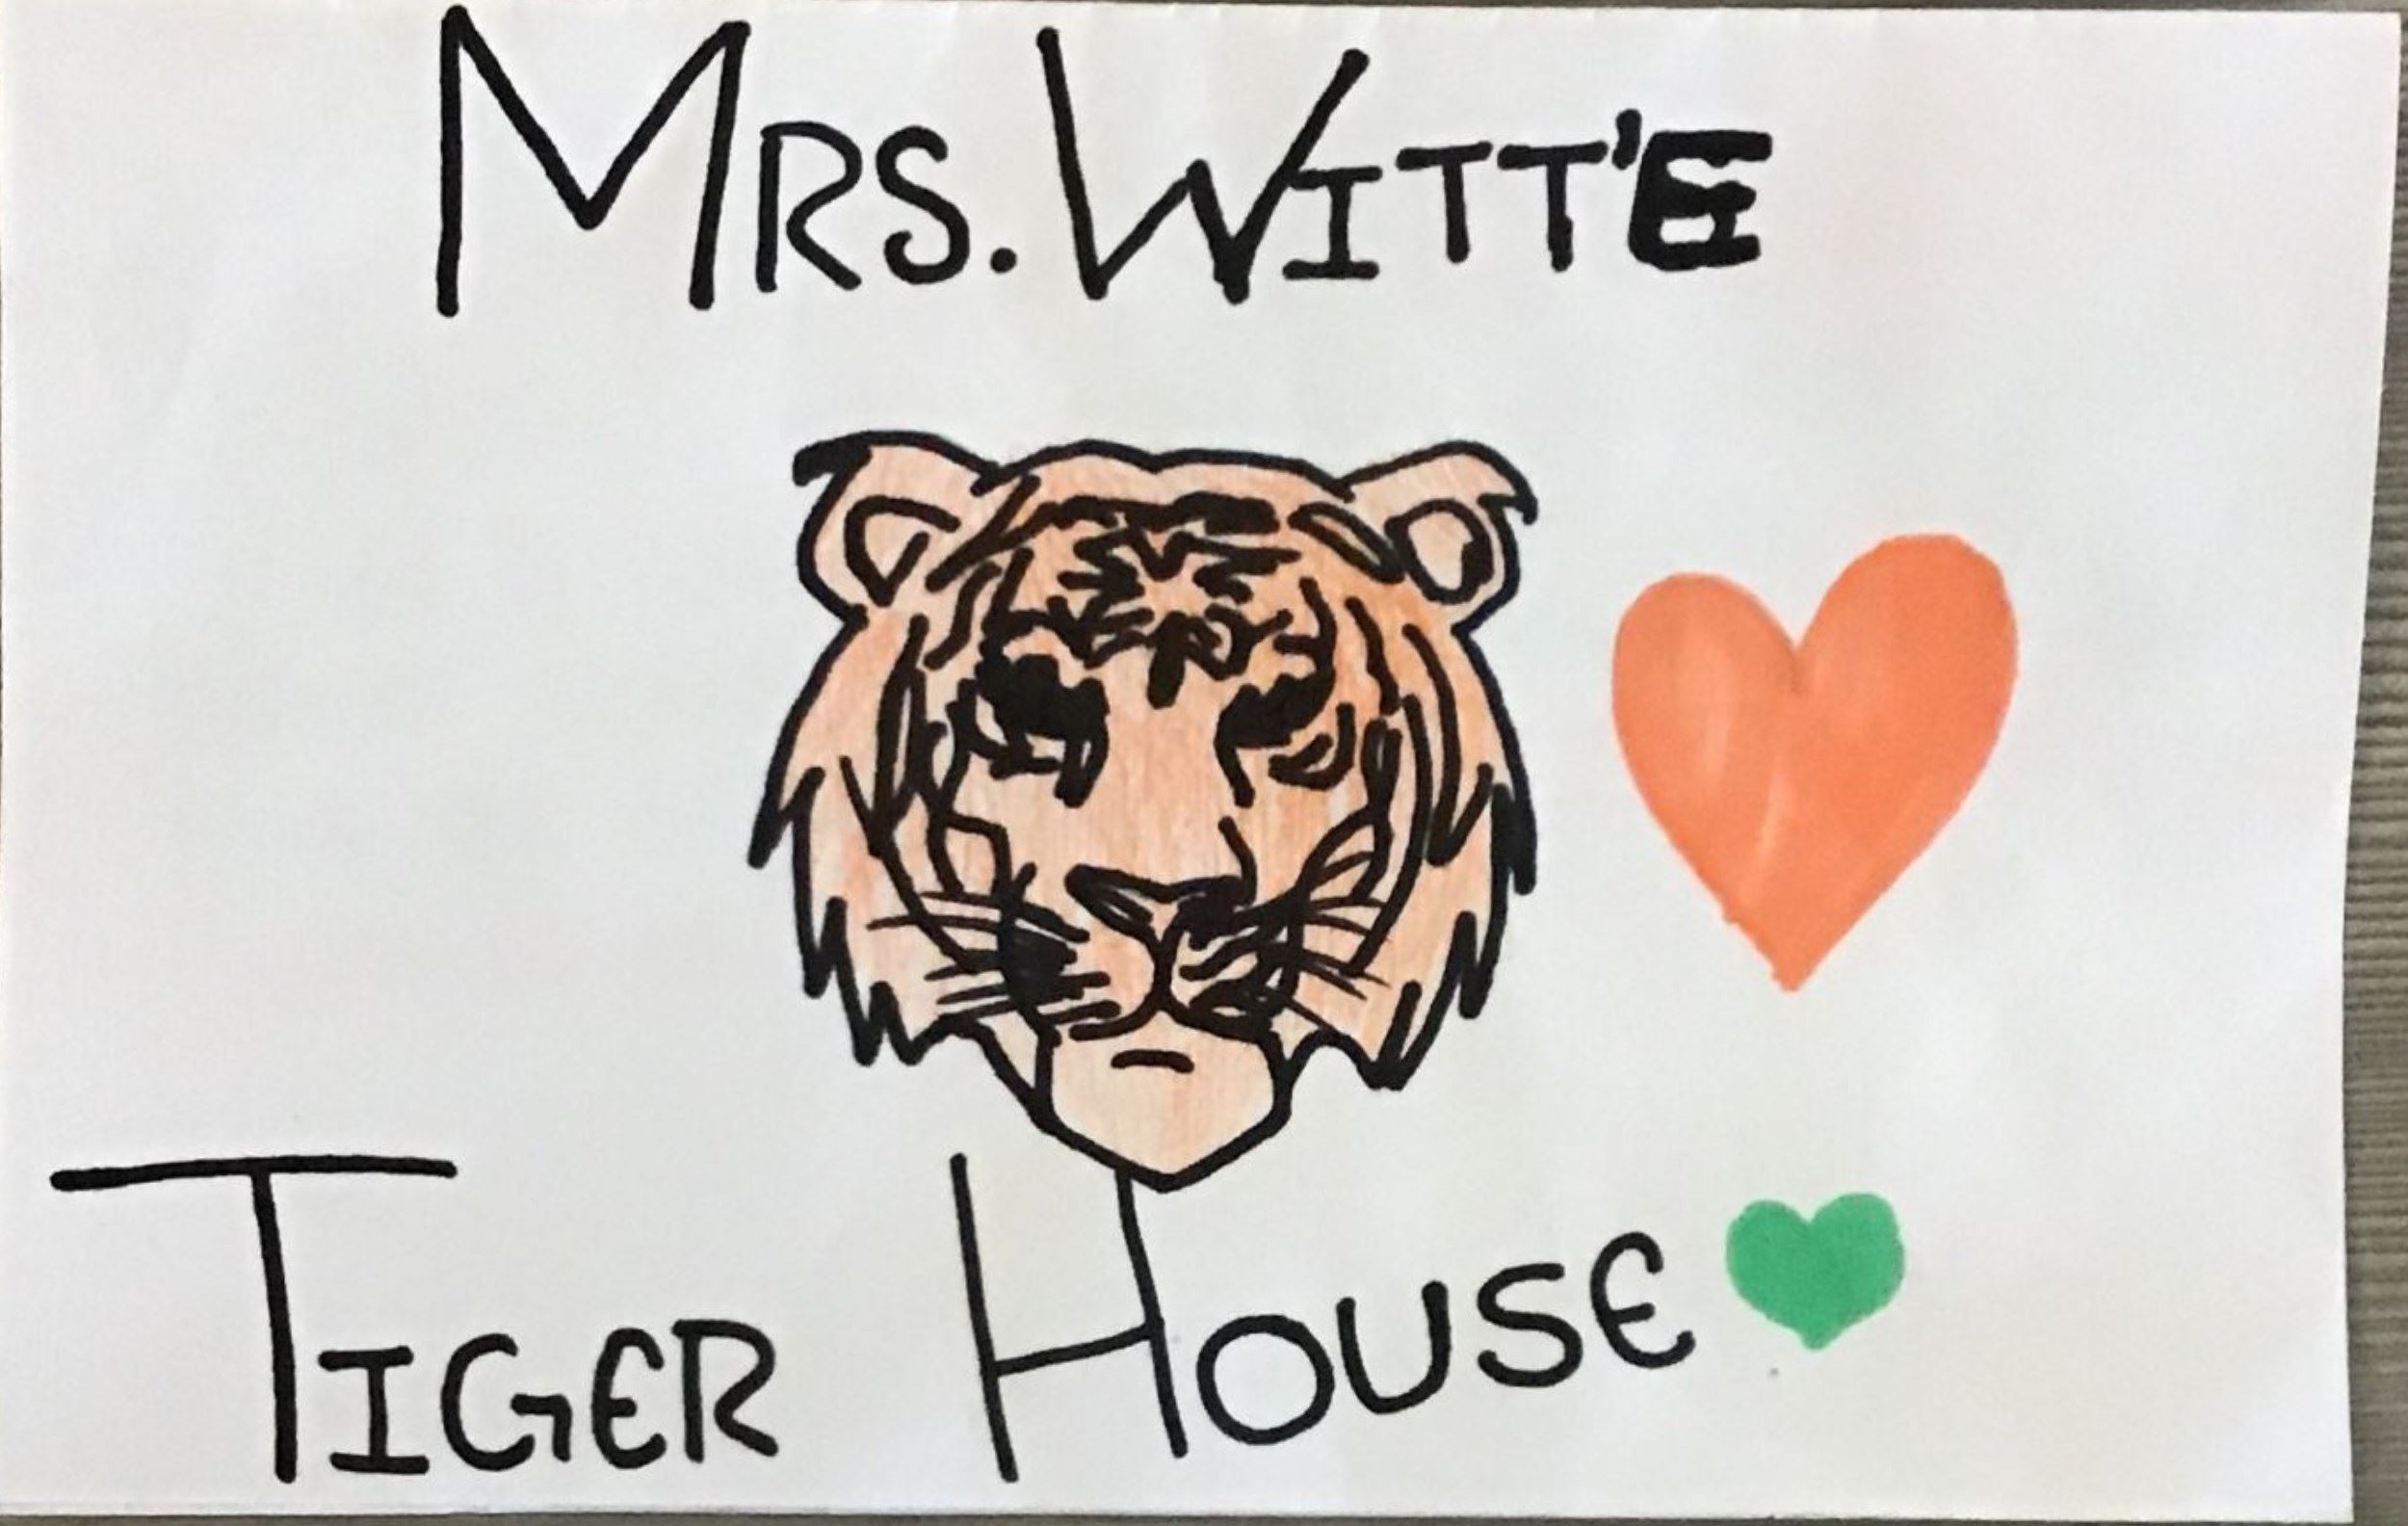 MRS. WITT'E
TIGER HOUSE